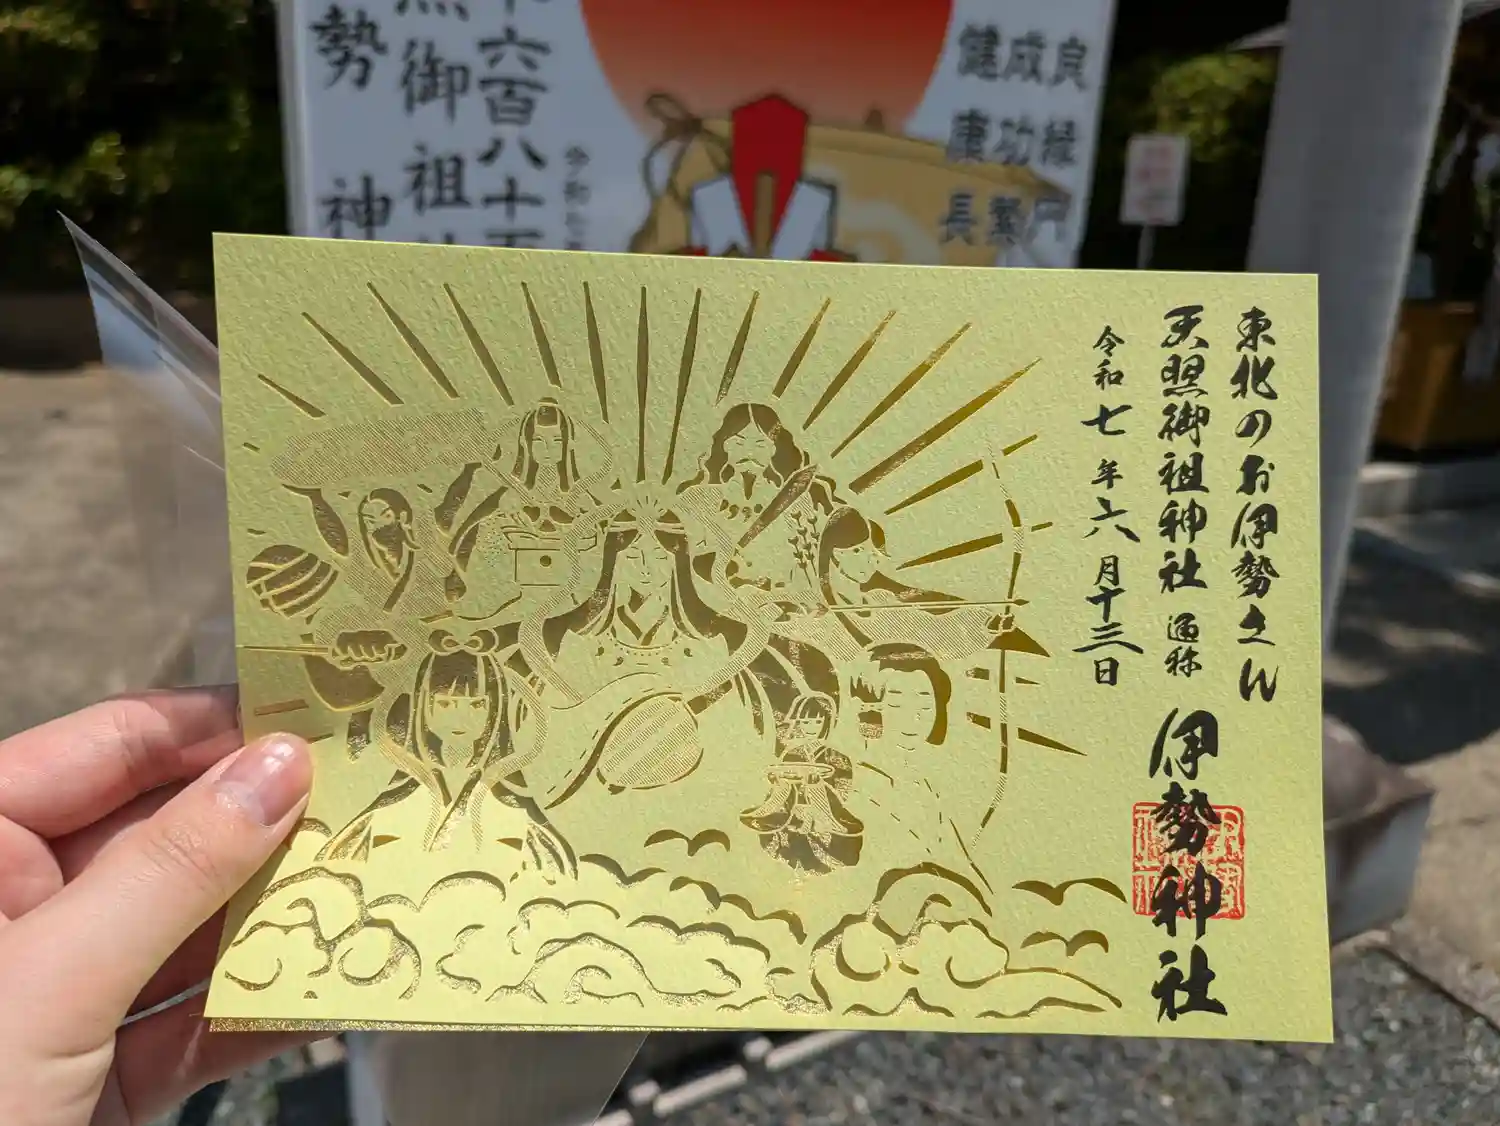 東北のお伊勢さん
天照御祖神社 通称
伊勢神社
令和七年六月十三日
良縁円
成功繁
健康長
六百八十
令和七
御祖
勢 神